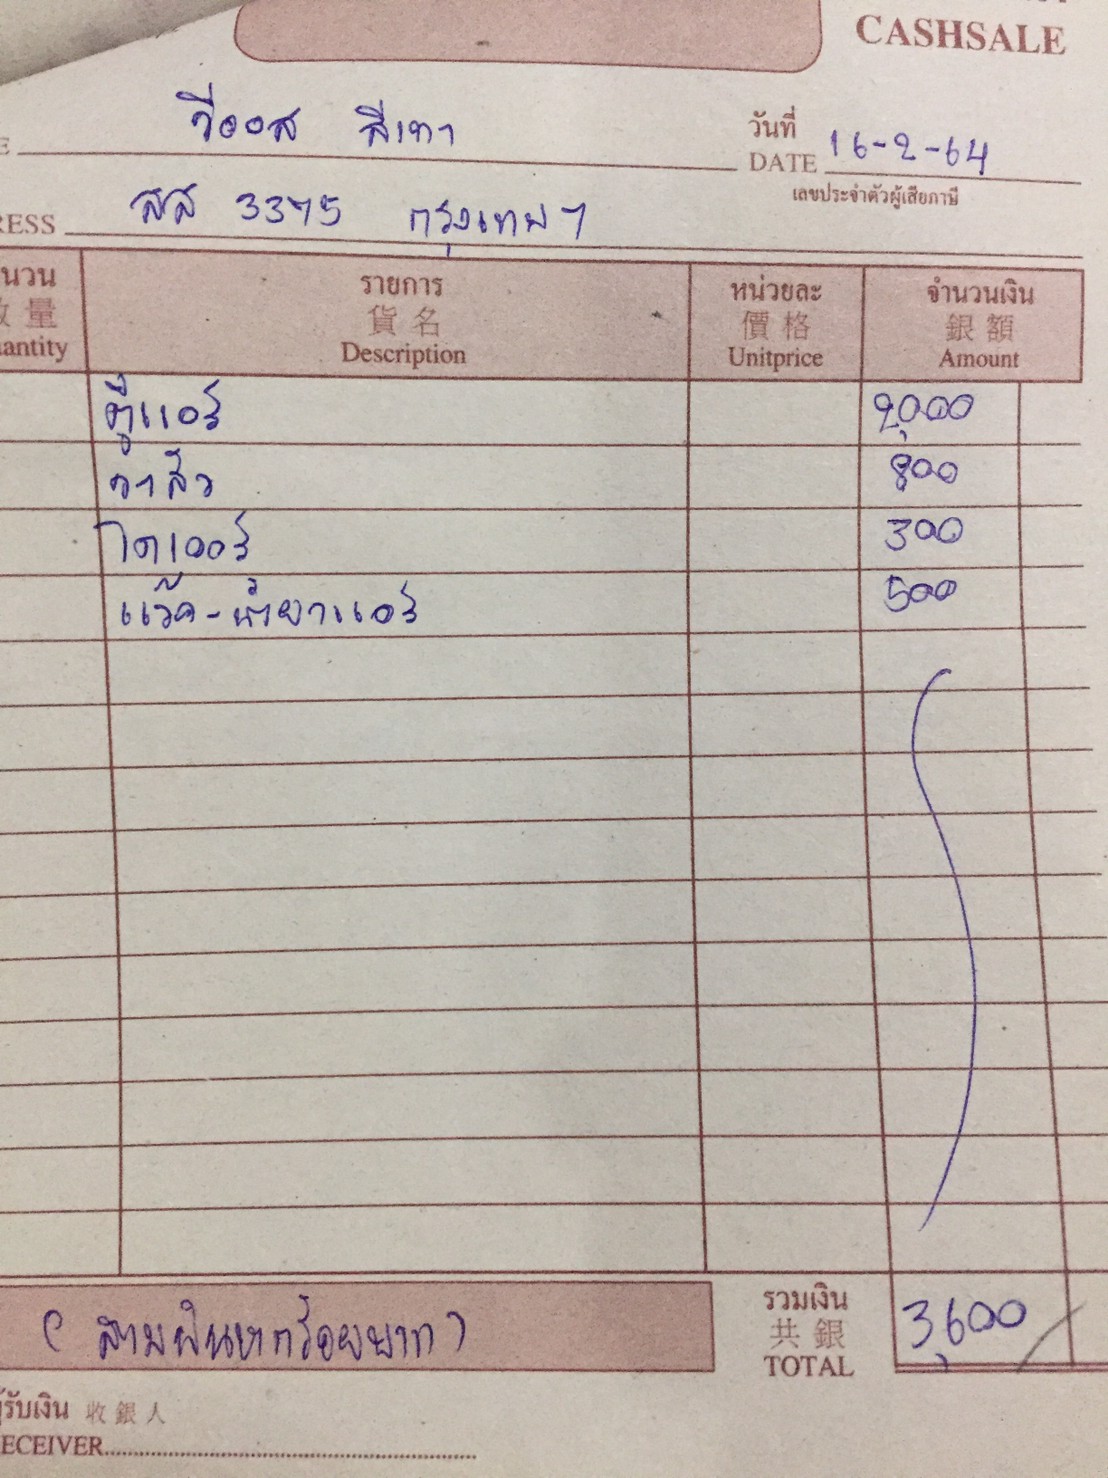 CASHSALE
วีออส สีเทา
วันที่
DATE 16-2-64
เลขประจำตัวผู้เสียภาษี
RESS สส 3375 กรุงเทพฯ
นวน รายการ หน่วยละ จำนวนเงิน
量 貨名 價格 銀額
antity Description Unitprice Amount
ตู้แอร์ 2,000
วาล์ว 800
ไดเออร์ 300
แว๊ค-น้ำยาแอร์ 500
รวมเงิน
共銀
TOTAL 3,600
(สามพันหกร้อยบาท)
รับเงิน 收銀人
ECEIVER